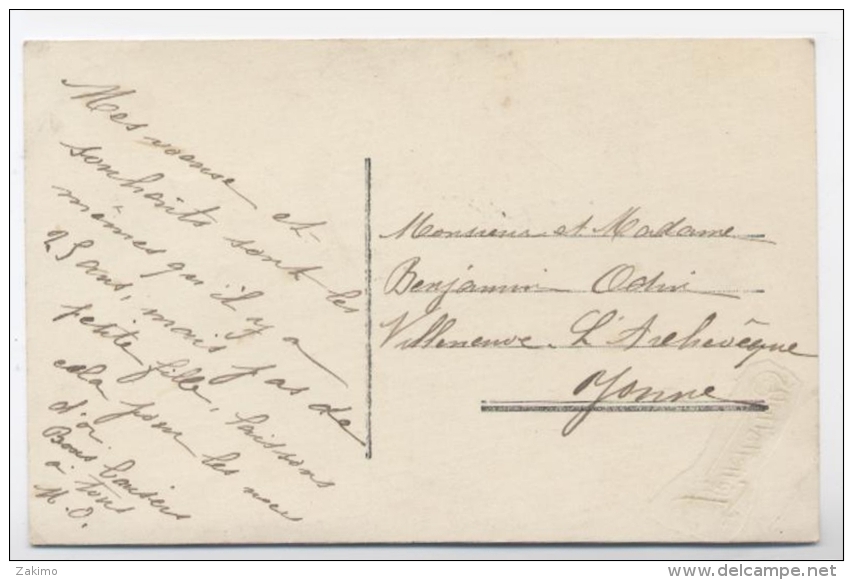 Mes voeux et
souhaits sont les
mêmes qu'il y a
25 ans, mais pas de
petite fille, laissons
cela pour les noces
d'or.
Bons baisers
à tous
M. O.
Monsieur et Madame
Benjamin Odin
Villeneuve. L'Archevêque
Yonne
Zakimo
delcampe.net